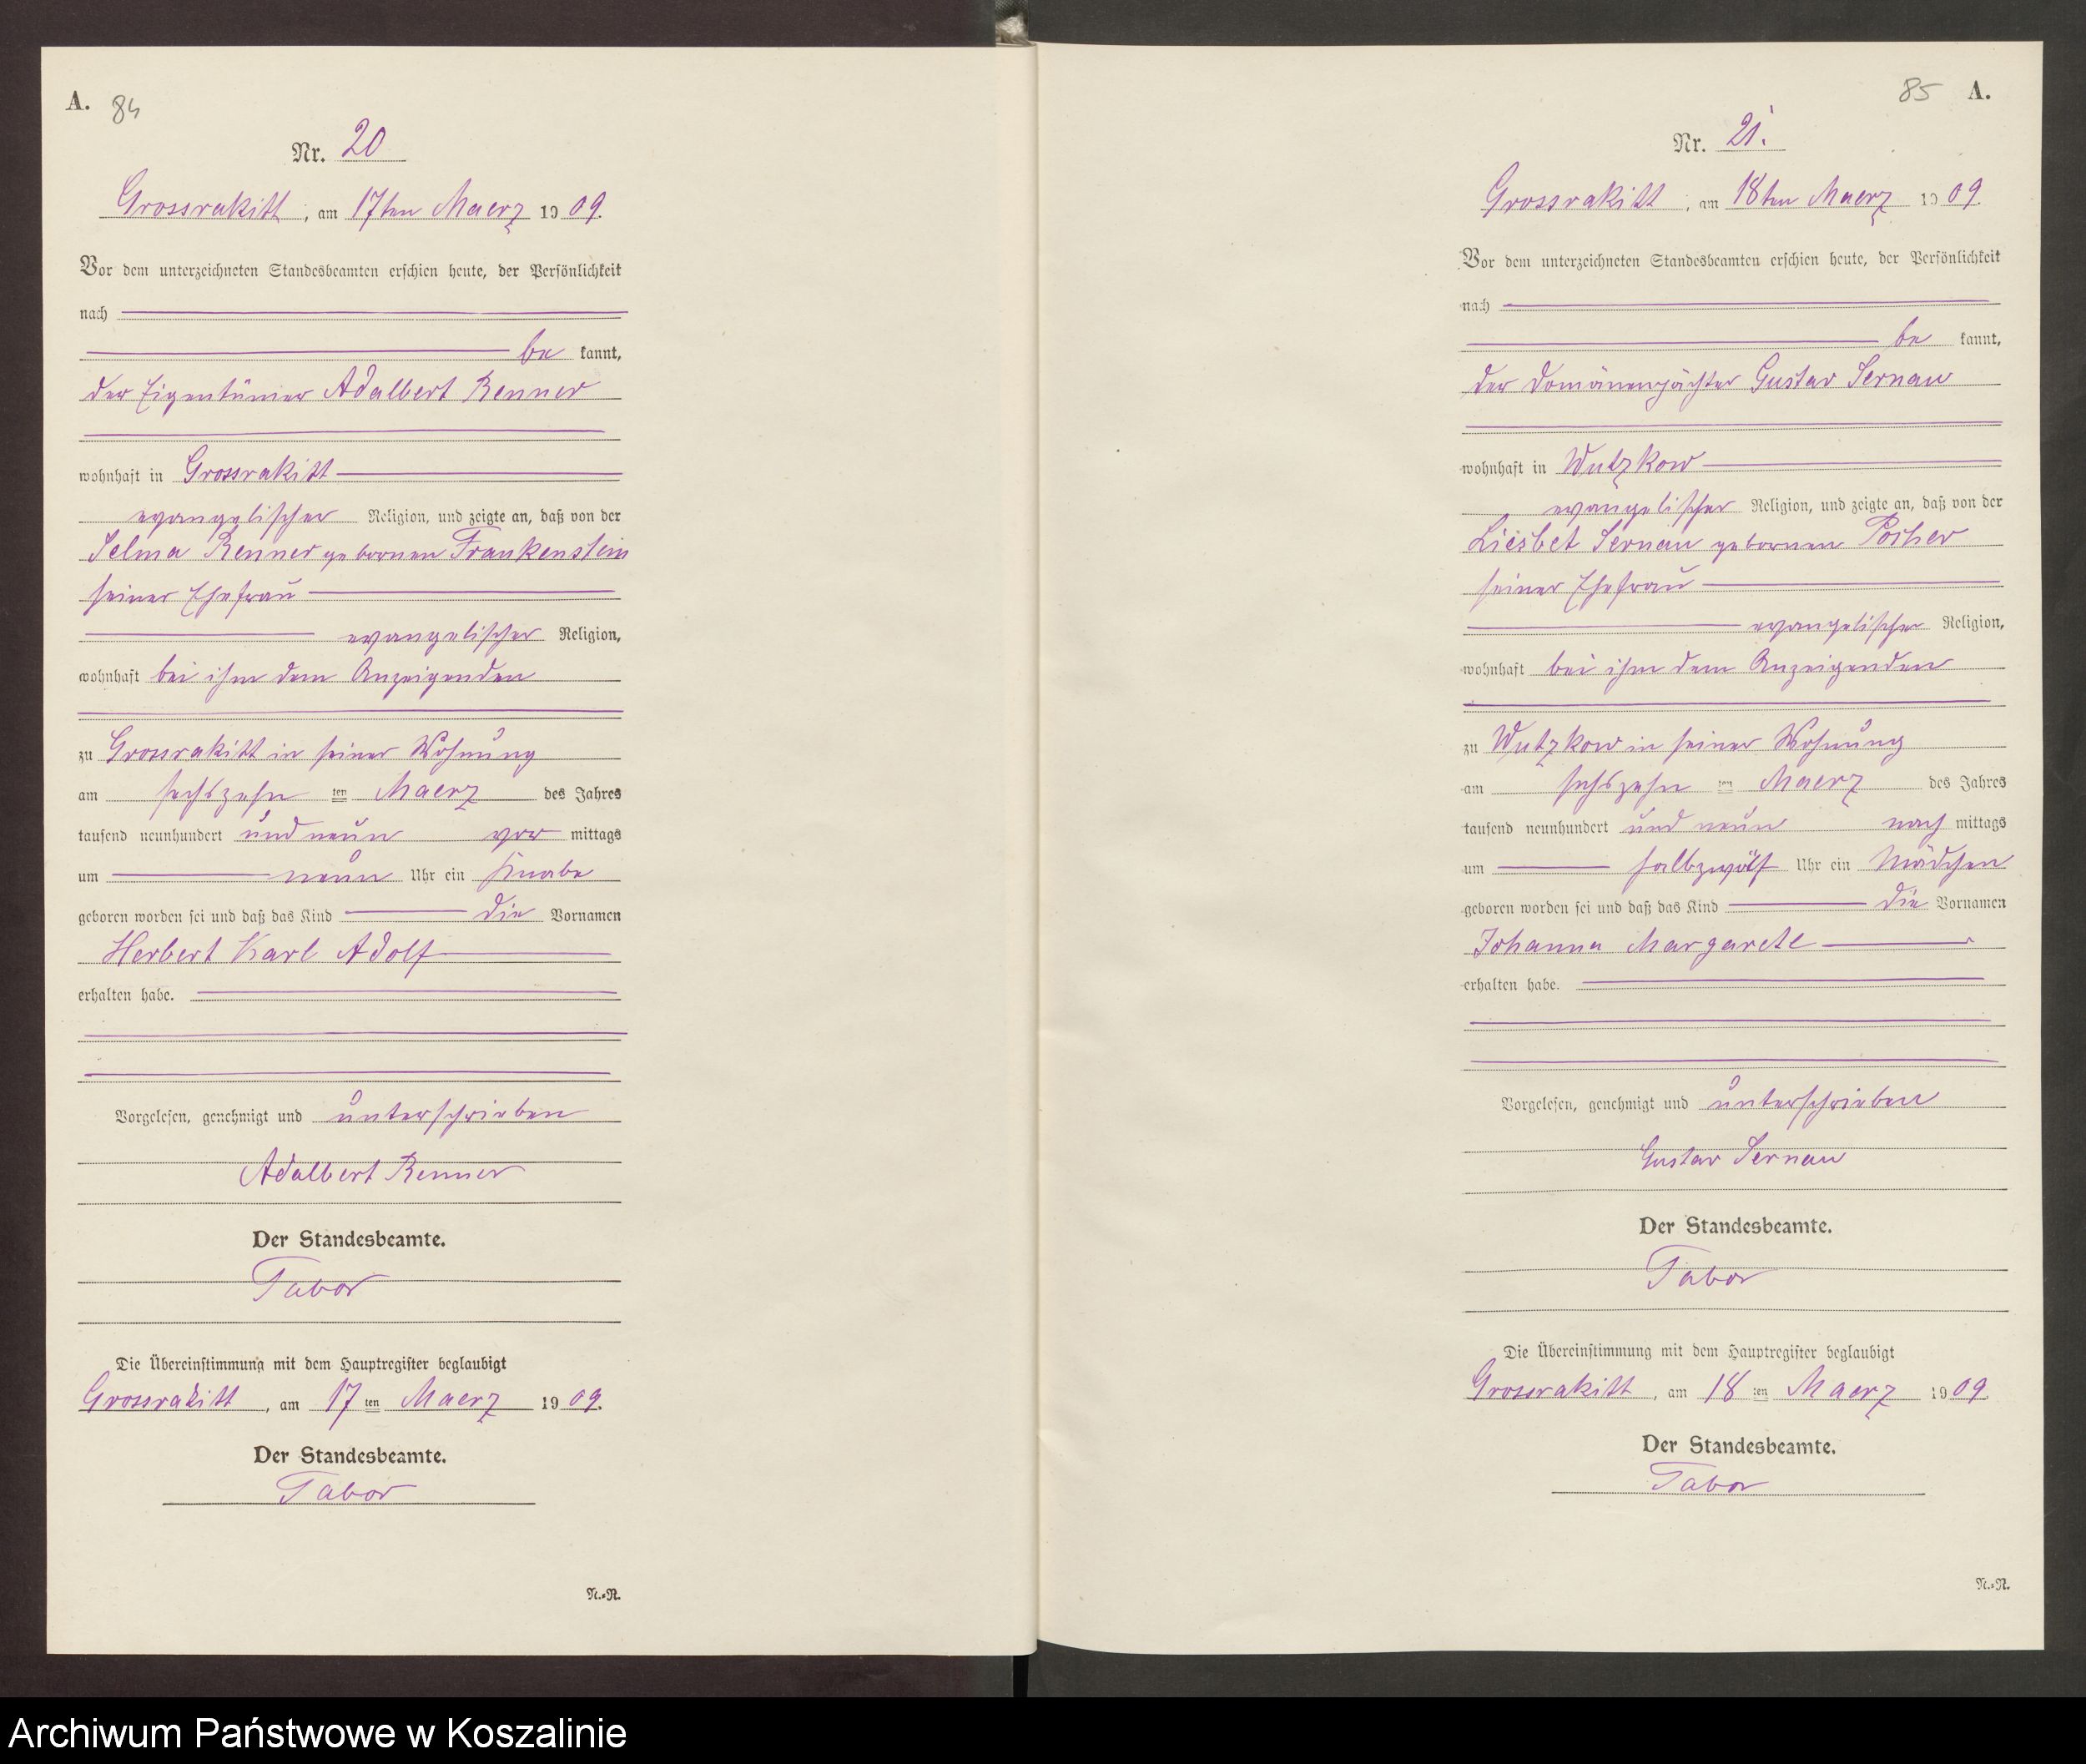 A. 84
Nr. 20
Grossrakitt, am 17ten Maerz 1909.
Vor dem unterzeichneten Standesbeamten erschien heute, der Persönlichkeit
nach
be kannt,
der Eigentümer Adalbert Renner
wohnhaft in Grossrakitt
evangelischer Religion, und zeigte an, daß von der
Selma Renner gebornen Frankenstein
seiner Ehefrau
evangelischer Religion,
wohnhaft bei ihm dem Anzeigenden
zu Grossrakitt in seiner Wohnung
am sechszehn ten Maerz des Jahres
tausend neunhundert und neun vor mittags
um neun Uhr ein Knabe
geboren worden sei und daß das Kind die Vornamen
Herbert Karl Adolf
erhalten habe.
Vorgelesen, genehmigt und unterschrieben
Adalbert Renner
Der Standesbeamte.
Tabor
Die Übereinstimmung mit dem Hauptregister beglaubigt
Grossrakitt, am 17 ten Maerz 1909.
Der Standesbeamte.
Tabor
N.=R.
85 A.
Nr. 21.
Grossrakitt, am 18ten Maerz 1909.
Vor dem unterzeichneten Standesbeamten erschien heute, der Persönlichkeit
nach
be kannt,
der Domänenpächter Gustav Sernau
wohnhaft in Wutzkow
evangelischer Religion, und zeigte an, daß von der
Liesbet Sernau gebornen
seiner Ehefrau
evangelischer Religion,
wohnhaft bei ihm dem Anzeigenden
zu Wutzkow in seiner Wohnung
am sechszehn ten Maerz des Jahres
tausend neunhundert und neun nach mittags
um halbzwölf Uhr ein Mädchen
geboren worden sei und daß das Kind die Vornamen
Johanna Margarete
erhalten habe.
Vorgelesen, genehmigt und unterschrieben
Gustav Sernau
Der Standesbeamte.
Tabor
Die Übereinstimmung mit dem Hauptregister beglaubigt
Grossrakitt, am 18 ten Maerz 1909
Der Standesbeamte.
Tabor
N.=R.
Archiwum Państwowe w Koszalinie